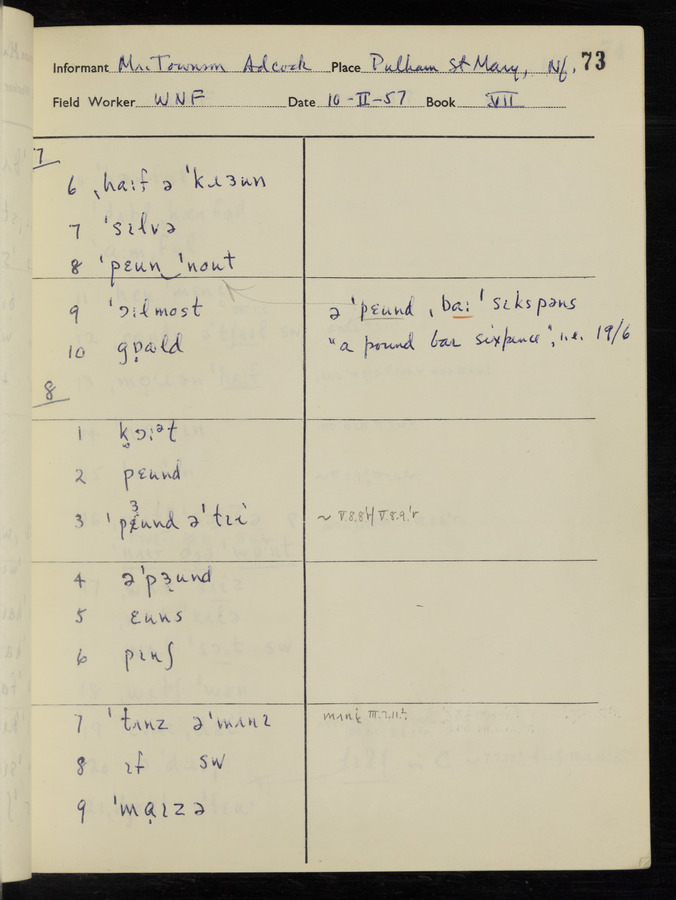 Informant Mr. Townson Adcock Place Pulham St Mary, Nf. 73
Field Worker WNF Date 10-II-57 Book VII
7
6 ˌhaːf ə ˈkɹɜun
7 ˈsɪlvə
8 ˈpɛun ‿ˈnout
9 ˈɔːlmost ə ˈpɛund ˌbaː ˈsɪkspəns
10 gɒʊld "a pound bar sixpence", i.e. 19/6
8
1 kɔːət
2 pɛund
3 ˈpɜund əˈtɹi ~ V.8.8
4 əˈpɜund
5 ɛuns
6 pɪnʃ
7 ˈtɪnz əˈmʌnɪ
8 ɪf sw
9 ˈmaɪzə